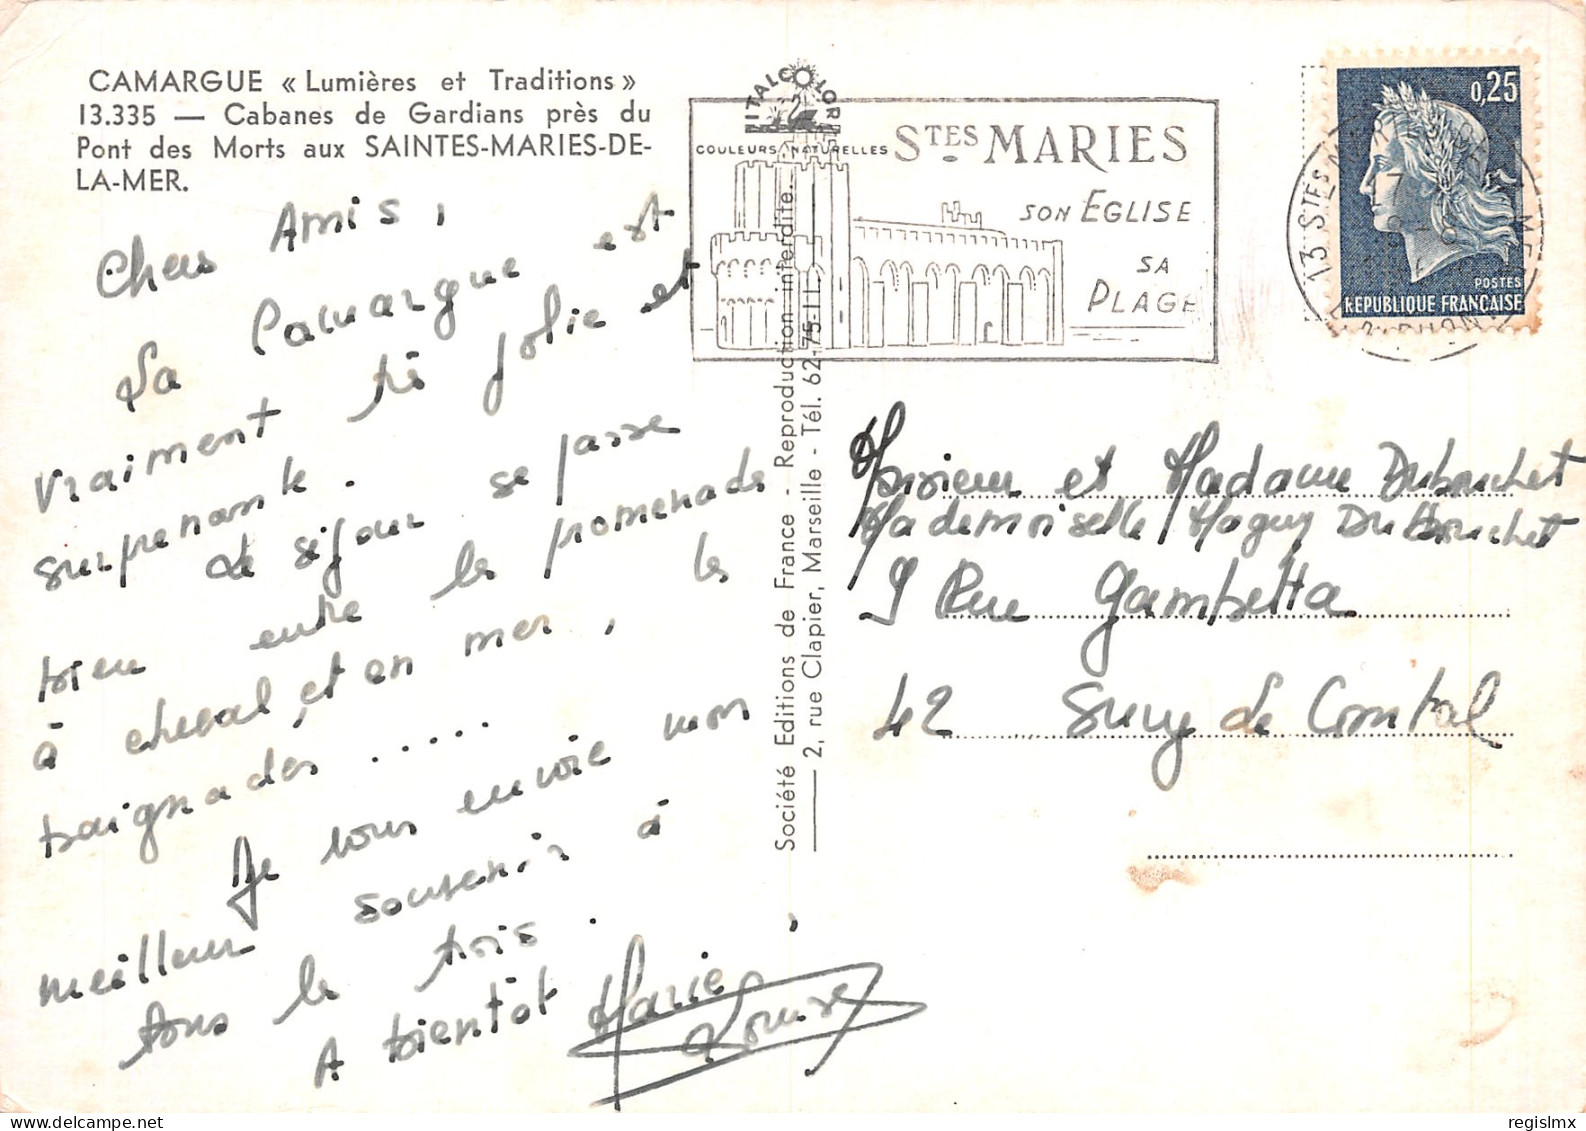 CAMARGUE « Lumières et Traditions »
13.335 — Cabanes de Gardians près du
Pont des Morts aux SAINTES-MARIES-DE-
LA-MER.
Chers Amis,
La Camargue est
vraiment très jolie et
surprenante.
Le séjour se passe
bien entre les promenades
à cheval, et en mer, les
baignades.....
Je vous envoie mon
meilleur souvenir à
tous les trois.
A bientôt Marie
Louise
ITALCOLOR
COULEURS NATURELLES
Société Editions de France - Reproduction interdite.
2, rue Clapier, Marseille - Tél. 62-75-11
STES MARIES
SON EGLISE
SA
PLAGE
13 STES MARIES DE LA MER
0,25
POSTES
REPUBLIQUE FRANÇAISE
Monsieur et Madame Dubouchet
Mademoiselle Maguy Dubouchet
9 Rue Gambetta
42 Sury de Comtal
regislmx